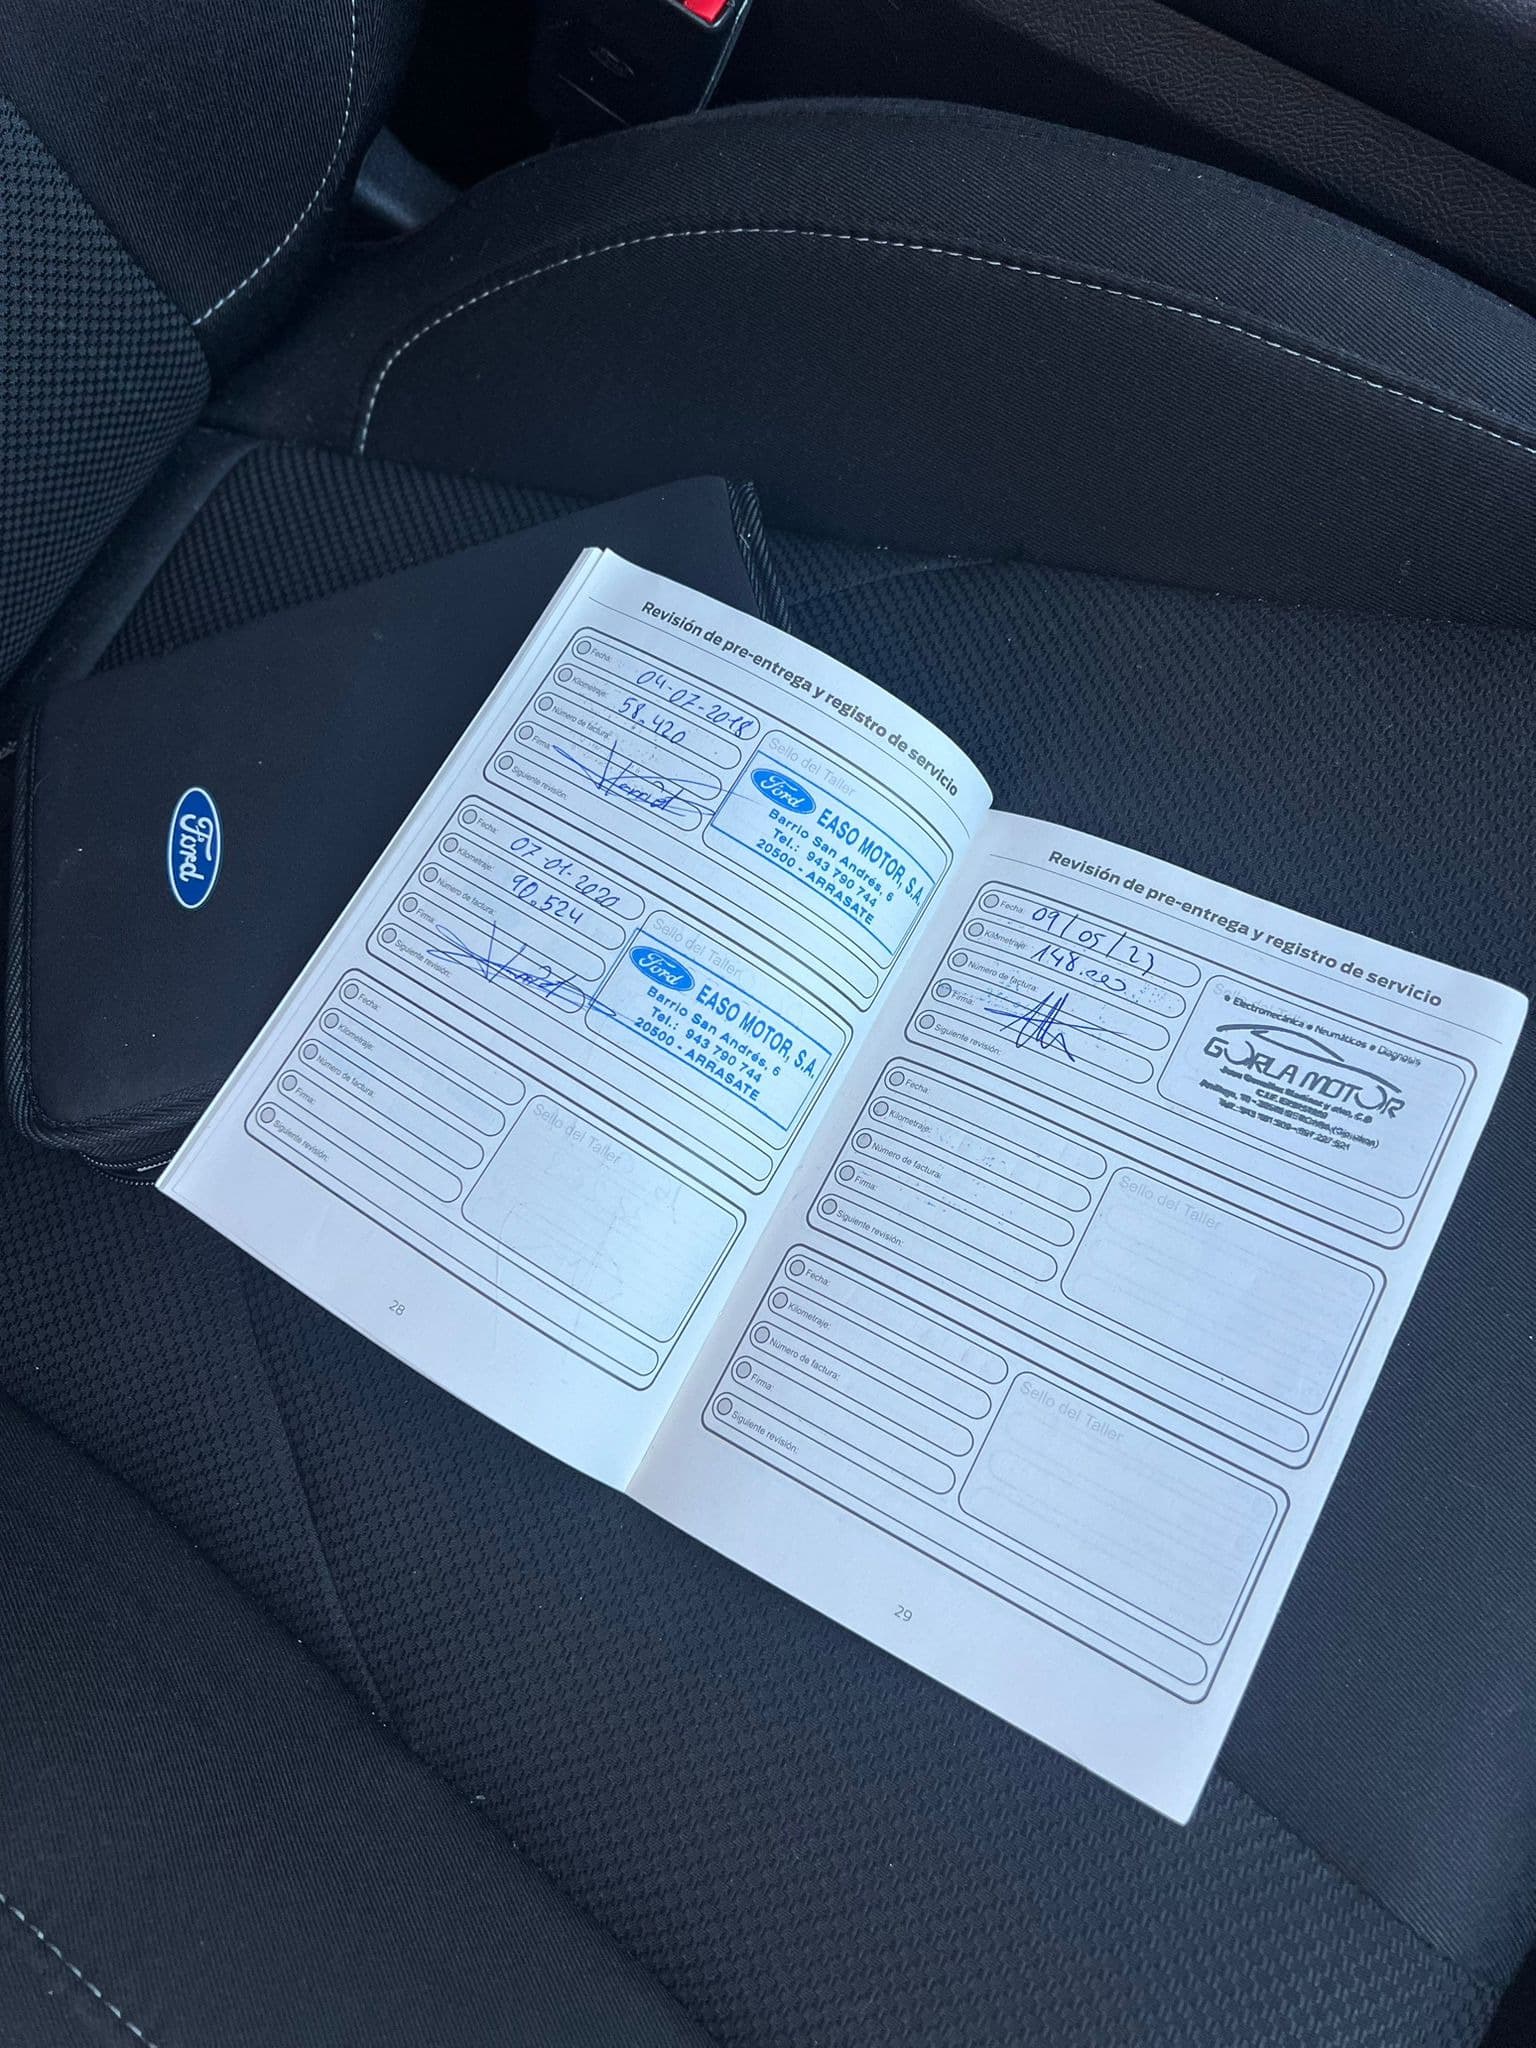 Ford
Revisión de pre-entrega y registro de servicio
Fecha: 04-07-2018
Kilometraje: 58.420
Número de factura:
Firma:
Siguiente revisión:
Sello del Taller
Ford EASO MOTOR, S.A.
Barrio San Andrés, 6
Tel.: 943 790 744
20500 - ARRASATE
Fecha: 07-01-2020
Kilometraje: 90.524
Número de factura:
Firma:
Siguiente revisión:
Sello del Taller
Ford EASO MOTOR, S.A.
Barrio San Andrés, 6
Tel.: 943 790 744
20500 - ARRASATE
Fecha:
Kilometraje:
Número de factura:
Firma:
Siguiente revisión:
Sello del Taller
28
Revisión de pre-entrega y registro de servicio
Fecha: 09/05/23
Kilometraje: 148.000
Número de factura:
Firma:
Siguiente revisión:
Sello del
Electromecánica Neumáticos Diagnosis
GORLA MOTOR
Fecha:
Kilometraje:
Número de factura:
Firma:
Siguiente revisión:
Sello del Taller
Fecha:
Kilometraje:
Número de factura:
Firma:
Siguiente revisión:
Sello del Taller
29